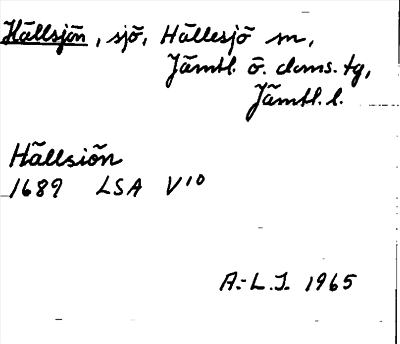 Hällsjön, sjö, Hällesjö sn,
Jämtl. ö. doms. tg,
Jämtl. l.
Hällsiön
1689 LSA V10
A.-L.J. 1965